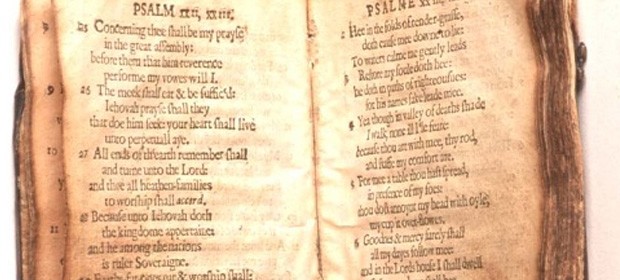 PSALM xxii, xxiii,
25 Concerning thee shall be my prayse
in the great assembly:
before them that him reverence
performe my vowes will I.
26 The meek shall eat & be suffic'd:
Iehovah prayse shall they
that doe him seek: your heart shall live
unto perpetuall aye.
27 All ends of th'earth remember shall
and turne unto the Lord:
and thee all heathen-families
to worship shall accord,
28 Because unto Iehovah doth
the kingdome appertaine:
and he among the nations
is ruler Soveraigne.
& worship shall:
9
10
11
PSALME
2 Hee in the folds of tender-grasse,
doth cause mee downe to lie:
To waters calme me gently leads
3 Restore my soule doth hee:
he doth in paths of righteousnes:
for his names sake leade mee.
4 Yea though in valley of deaths shade
I walk, none ill I'le feare:
because thou art with mee, thy rod,
and staffe my comfort are.
5 For mee a table thou hast spread,
in presence of my foes:
thou dost annoynt my head with oyle,
my cup it over-flowes.
6 Goodnes & mercy surely shall
all my dayes follow mee:
and in the Lords house I shall dwell